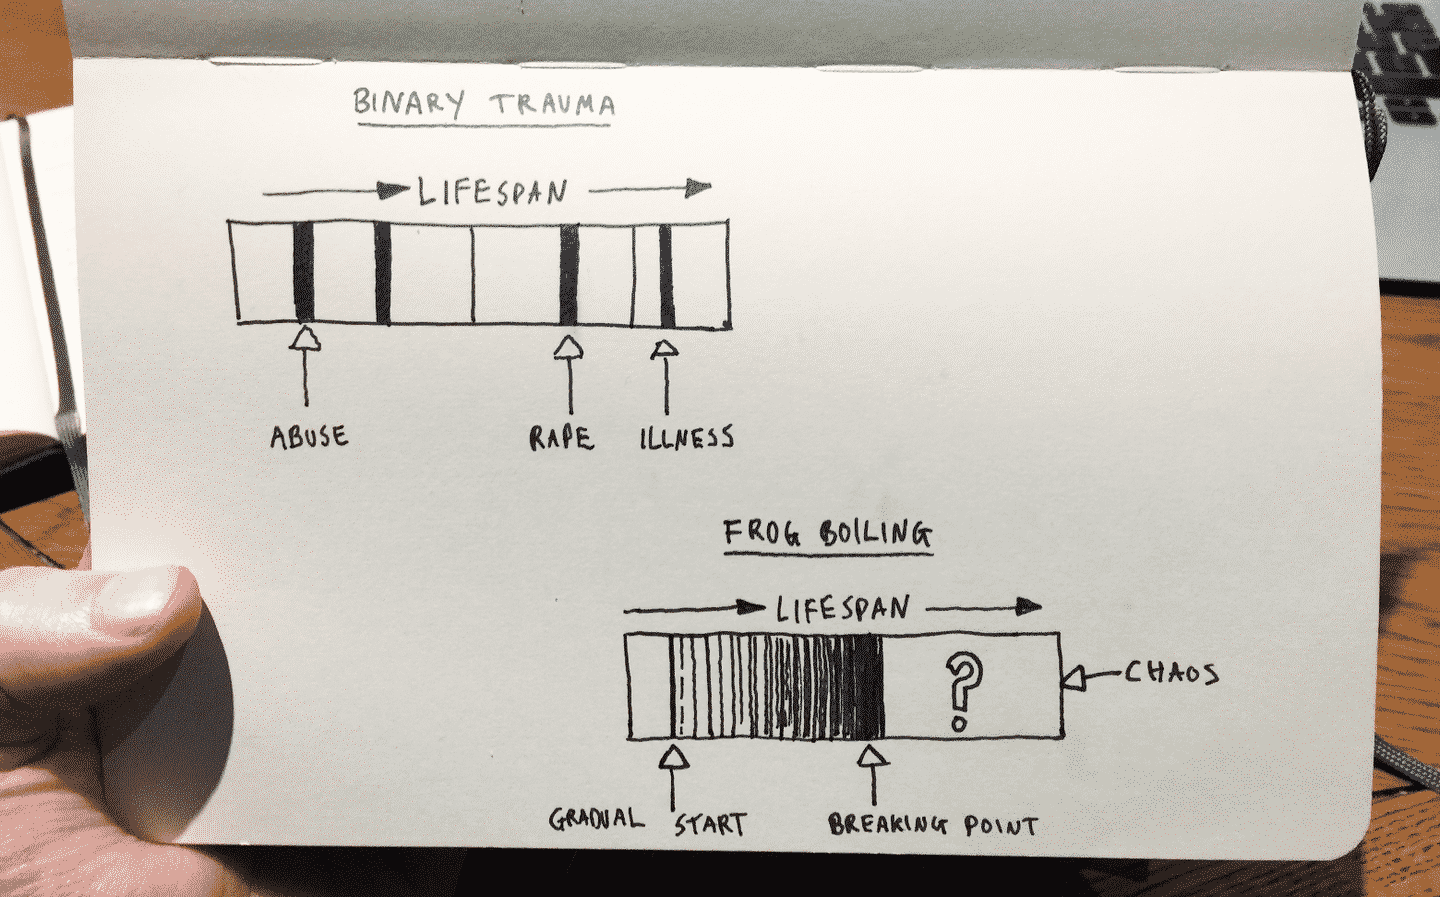 BINARY TRAUMA
LIFESPAN
ABUSE
RAPE
ILLNESS
FROG BOILING
LIFESPAN
?
CHAOS
GRADUAL START
BREAKING POINT